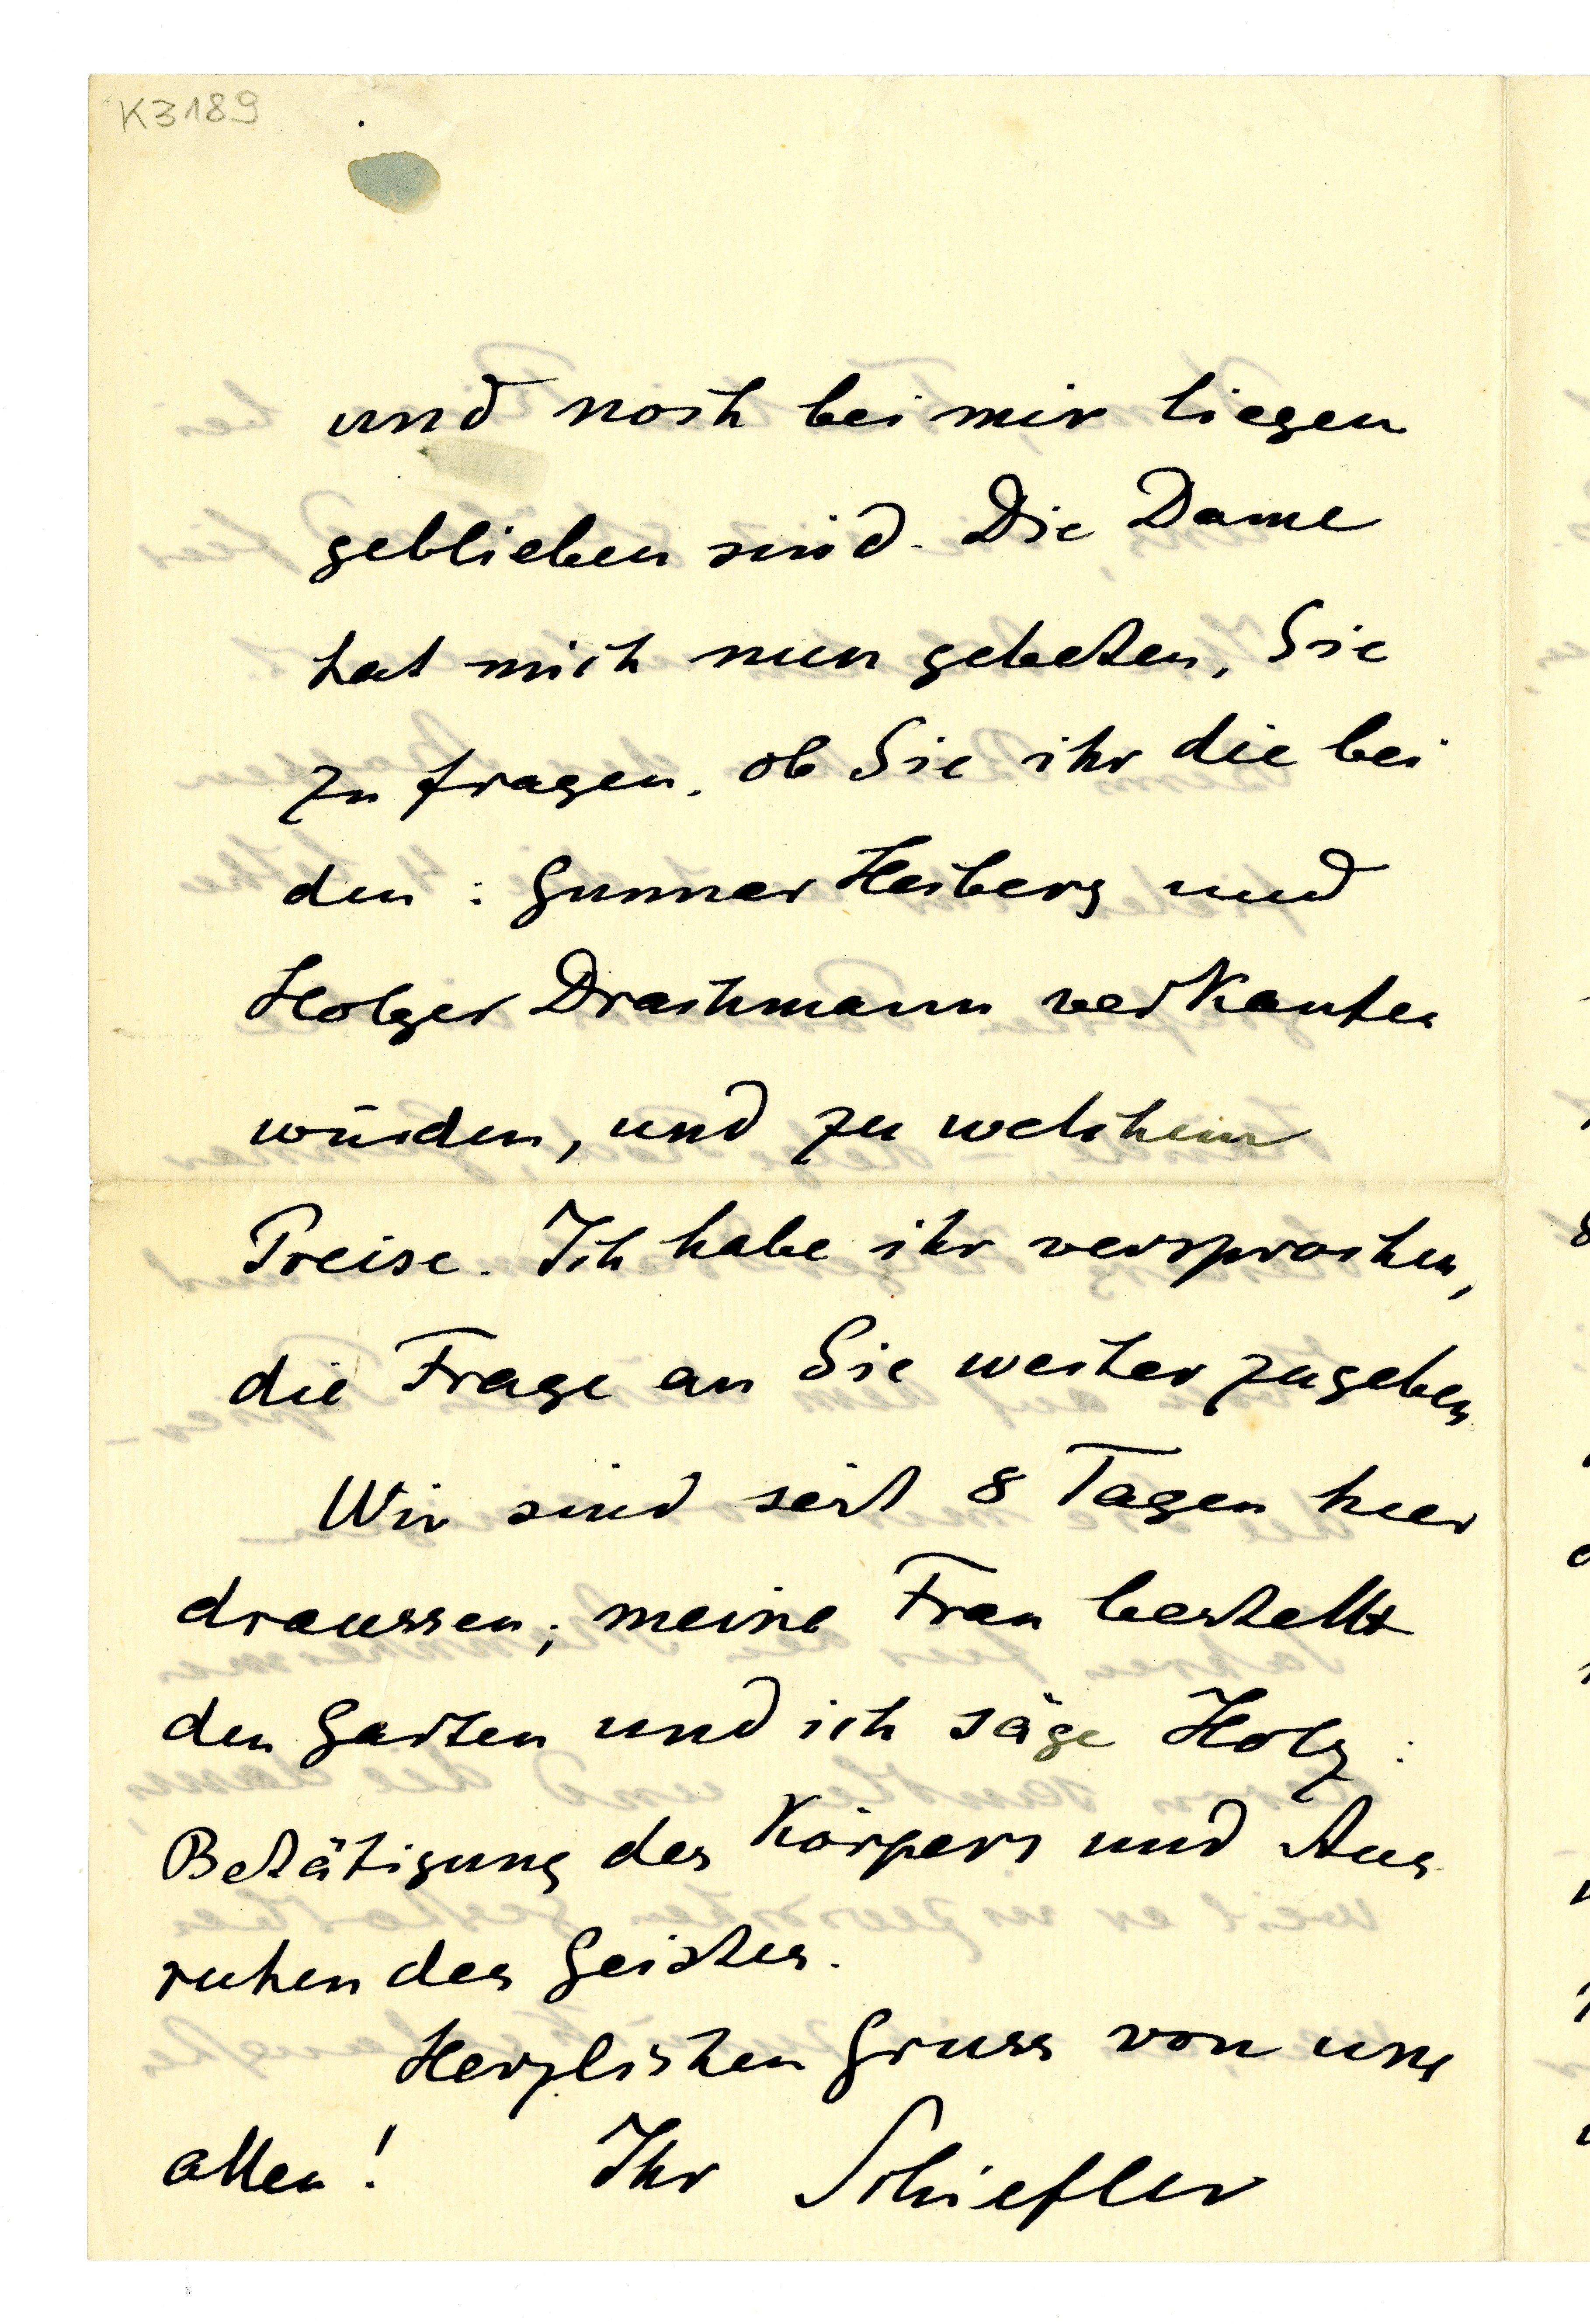 K3189
und noch bei mir liegen
geblieben sind. Die Dame
hat mich nun gebeten, Sie
zu fragen, ob Sie ihr die bei
den: Gunnar Heiberg und
Holger Drachmann verkaufen
würden, und zu welchem
Preise. Ich habe ihr versprochen,
die Frage an Sie weiterzugeben.
Wir sind seit 8 Tagen hier
draussen; meine Frau bestellt
den Garten und ich säge Holz:
Betätigung des Körpers und Aus
ruhen des Geistes.
Herzlichen Gruss von uns
allen! Ihr Schiefler